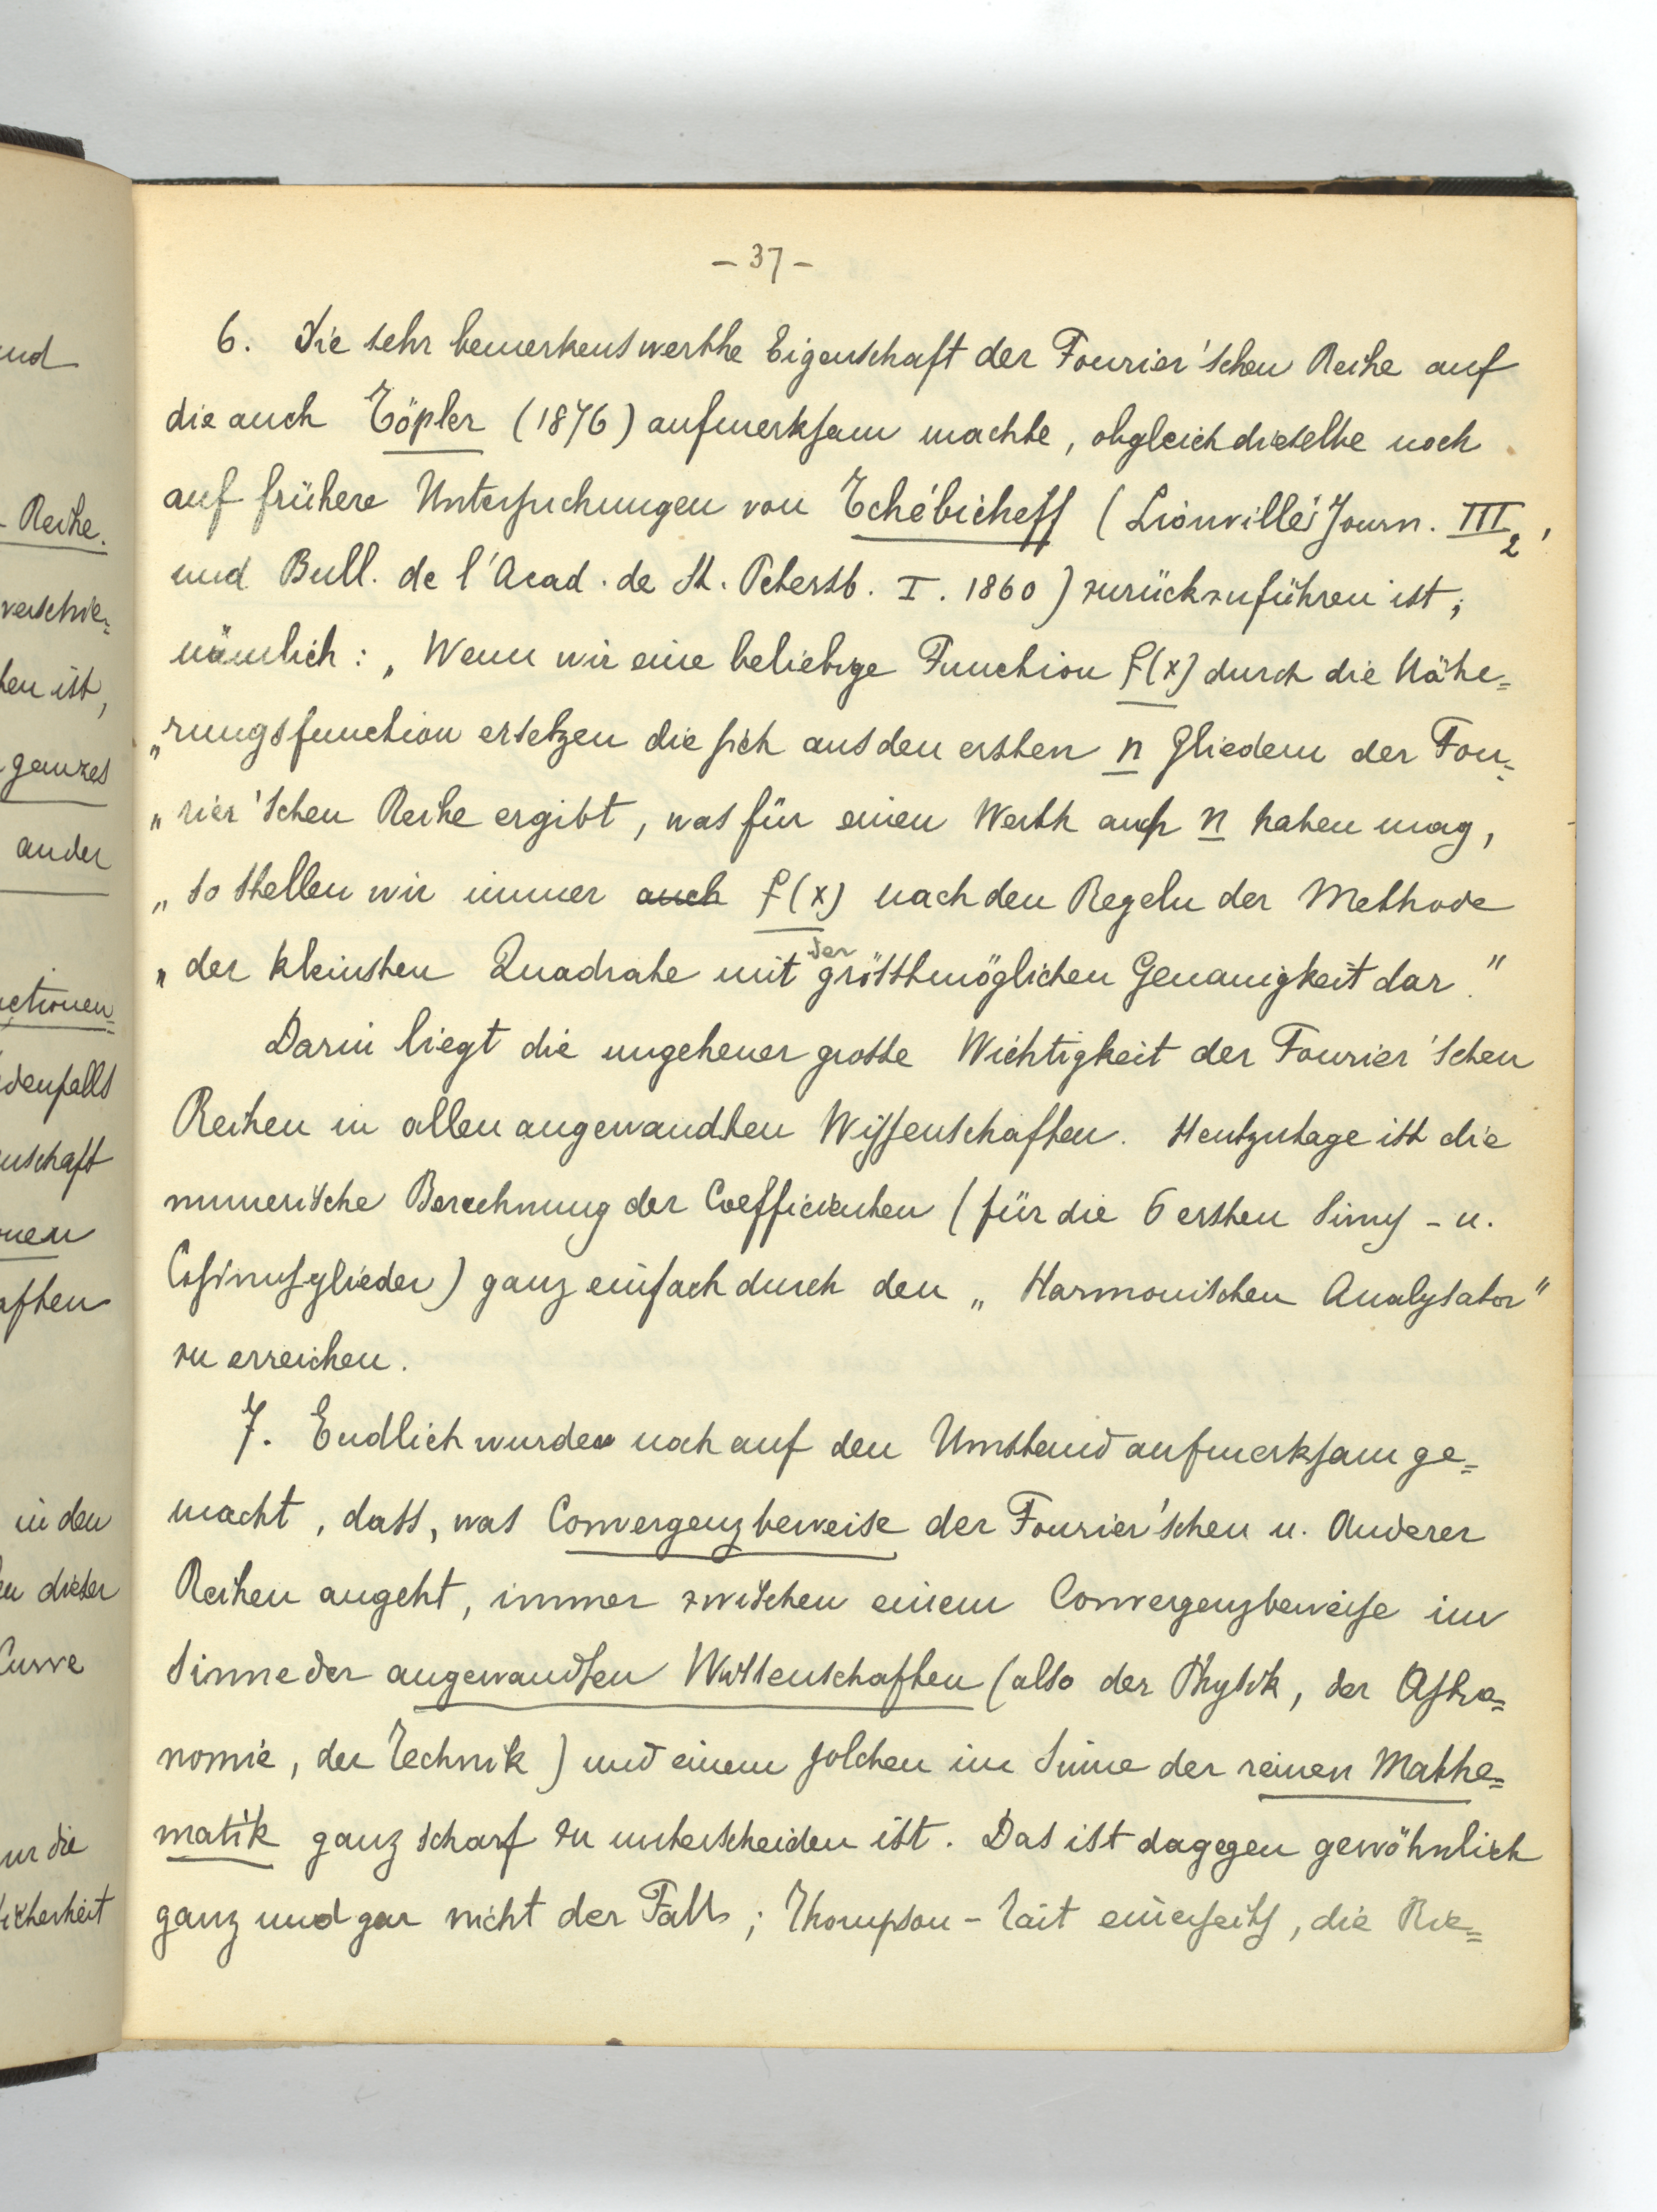 - 37 -
6. Die sehr bemerkenswerthe Eigenschaft der Fourier'schen Reihe auf
die auch Töpler (1876) aufmerksam machte, obgleich dieselbe noch
auf frühere Untersuchungen von Tchébicheff (Liouville's Journ. III2,
und Bull. de l'Acad. de St. Petersb. I. 1860) zurückzuführen ist,
nämlich: „Wenn wir eine beliebige Function f(x) durch die Nähe=
„rungsfunction ersetzen die sich aus den ersten n Gliedern der Fou=
„rier'schen Reihe ergibt, was für einen Werth auch n haben mag,
„so stellen wir immer auch f(x) nach den Regeln der Methode
„der kleinsten Quadrate mit der grösstmöglichen Genauigkeit dar."
Darin liegt die ungeheuer grosse Wichtigkeit der Fourier'schen
Reihen in allen angewandten Wissenschaften. Heutzutage ist die
numerische Berechnung der Coefficienten (für die 6 ersten Sinus - u.
Cosinusglieder) ganz einfach durch den „Harmonischen Analysator"
zu erreichen.
7. Endlich wurde noch auf den Umstand aufmerksam ge=
macht, dass, was Convergenzbeweise der Fourier'schen u. Anderer
Reihen angeht, immer zwischen einem Convergenzbeweise im
Sinne der angewandten Wissenschaften (also der Physik, der Astro=
nomie, der Technik) und einem solchen im Sinne der reinen Mathe=
matik ganz scharf zu unterscheiden ist. Das ist dagegen gewöhnlich
ganz und gar nicht der Fall; Thompson - Tait einerseits, die Rie=
und
- Reihe.
verschie=
ten ist,
ganzes
ander
nctionen=
denfalls
nschaft
nen
aften
in den
en dieser
Curve
ur die
icherheit